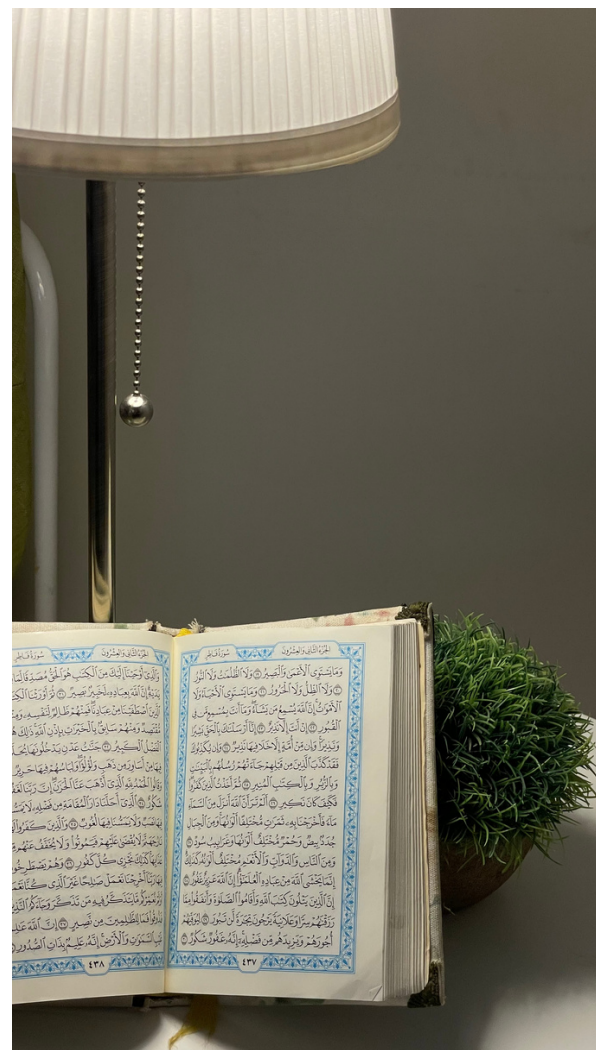 الجزء الثاني والعشرون سورة فاطر
وَمَا يَسْتَوِي ٱلْأَعْمَىٰ وَٱلْبَصِيرُ ١٩ وَلَا ٱلظُّلُمَٰتُ وَلَا ٱلنُّورُ
٢٠ وَلَا ٱلظِّلُّ وَلَا ٱلْحَرُورُ ٢١ وَمَا يَسْتَوِي ٱلْأَحْيَآءُ وَلَا
ٱلْأَمْوَٰتُ إِنَّ ٱللَّهَ يُسْمِعُ مَن يَشَآءُ وَمَآ أَنتَ بِمُسْمِعٍ مَّن فِي
ٱلْقُبُورِ ٢٢ إِنْ أَنتَ إِلَّا نَذِيرٌ ٢٣ إِنَّآ أَرْسَلْنَٰكَ بِٱلْحَقِّ بَشِيرًا
وَنَذِيرًا وَإِن مِّنْ أُمَّةٍ إِلَّا خَلَا فِيهَا نَذِيرٌ ٢٤ وَإِن يُكَذِّبُوكَ
فَقَدْ كَذَّبَ ٱلَّذِينَ مِن قَبْلِهِمْ جَآءَتْهُمْ رُسُلُهُم بِٱلْبَيِّنَٰتِ
وَبِٱلزُّبُرِ وَبِٱلْكِتَٰبِ ٱلْمُنِيرِ ٢٥ ثُمَّ أَخَذْتُ ٱلَّذِينَ كَفَرُوا۟
فَكَيْفَ كَانَ نَكِيرِ ٢٦ أَلَمْ تَرَ أَنَّ ٱللَّهَ أَنزَلَ مِنَ ٱلسَّمَآءِ
مَآءً فَأَخْرَجْنَا بِهِۦ ثَمَرَٰتٍ مُّخْتَلِفًا أَلْوَٰنُهَا وَمِنَ ٱلْجِبَالِ
جُدَدٌۢ بِيضٌ وَحُمْرٌ مُّخْتَلِفٌ أَلْوَٰنُهَا وَغَرَابِيبُ سُودٌ ٢٧
وَمِنَ ٱلنَّاسِ وَٱلدَّوَآبِّ وَٱلْأَنْعَٰمِ مُخْتَلِفٌ أَلْوَٰنُهُۥ كَذَٰلِكَ
إِنَّمَا يَخْشَى ٱللَّهَ مِنْ عِبَادِهِ ٱلْعُلَمَٰٓؤُا۟ إِنَّ ٱللَّهَ عَزِيزٌ غَفُورٌ ٢٨
إِنَّ ٱلَّذِينَ يَتْلُونَ كِتَٰبَ ٱللَّهِ وَأَقَامُوا۟ ٱلصَّلَوٰةَ وَأَنفَقُوا۟ مِمَّا
رَزَقْنَٰهُمْ سِرًّا وَعَلَانِيَةً يَرْجُونَ تِجَٰرَةً لَّن تَبُورَ ٢٩ لِيُوَفِّيَهُمْ
أُجُورَهُمْ وَيَزِيدَهُم مِّن فَضْلِهِۦٓ إِنَّهُۥ غَفُورٌ شَكُورٌ ٣٠
٤٣٧
الجزء الثاني والعشرون سورة فاطر
وَٱلَّذِيٓ أَوْحَيْنَآ إِلَيْكَ مِنَ ٱلْكِتَٰبِ هُوَ ٱلْحَقُّ مُصَدِّقًا لِّمَا
يَدَيْهِ إِنَّ ٱللَّهَ بِعِبَادِهِۦ لَخَبِيرٌۢ بَصِيرٌ ٣١ ثُمَّ أَوْرَثْنَا
ٱلَّذِينَ ٱصْطَفَيْنَا مِنْ عِبَادِنَا فَمِنْهُمْ ظَالِمٌ لِّنَفْسِهِۦ
مُّقْتَصِدٌ وَمِنْهُمْ سَابِقٌۢ بِٱلْخَيْرَٰتِ بِإِذْنِ ٱللَّهِ ذَٰلِكَ
ٱلْفَضْلُ ٱلْكَبِيرُ ٣٢ جَنَّٰتُ عَدْنٍ يَدْخُلُونَهَا
فِيهَا مِنْ أَسَاوِرَ مِن ذَهَبٍ وَلُؤْلُؤًا وَلِبَاسُهُمْ فِيهَا حَرِيرٌ
وَقَالُوا۟ ٱلْحَمْدُ لِلَّهِ ٱلَّذِيٓ أَذْهَبَ عَنَّا ٱلْحَزَنَ إِنَّ رَبَّنَا
شَكُورٌ ٣٤ ٱلَّذِيٓ أَحَلَّنَا دَارَ ٱلْمُقَامَةِ مِن فَضْلِهِۦ لَا
فِيهَا نَصَبٌ وَلَا يَمَسُّنَا فِيهَا لُغُوبٌ ٣٥ وَٱلَّذِينَ كَفَرُوا۟
نَارُ جَهَنَّمَ لَا يُقْضَىٰ عَلَيْهِمْ فَيَمُوتُوا۟ وَلَا يُخَفَّفُ عَنْهُم
عَذَابِهَا كَذَٰلِكَ نَجْزِي كُلَّ كَفُورٍ ٣٦ وَهُمْ يَصْطَرِخُونَ
فِيهَا رَبَّنَآ أَخْرِجْنَا نَعْمَلْ صَٰلِحًا غَيْرَ ٱلَّذِي كُنَّا
نُعَمِّرْكُم مَّا يَتَذَكَّرُ فِيهِ مَن تَذَكَّرَ وَجَآءَكُمُ
فَذُوقُوا۟ فَمَا لِلظَّٰلِمِينَ مِن نَّصِيرٍ ٣٧ إِنَّ ٱللَّهَ
غَيْبِ ٱلسَّمَٰوَٰتِ وَٱلْأَرْضِ إِنَّهُۥ عَلِيمٌۢ بِذَاتِ ٱلصُّدُورِ
٤٣٨